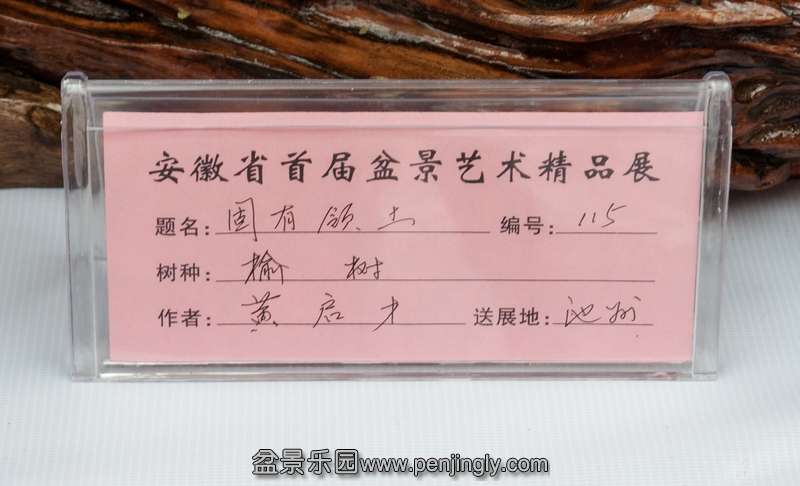 安徽省首届盆景艺术精品展
题名: 固有领土 编号: 115
树种: 榆树
作者: 黄启才 送展地: 池州
盆景乐园www.penjingly.com